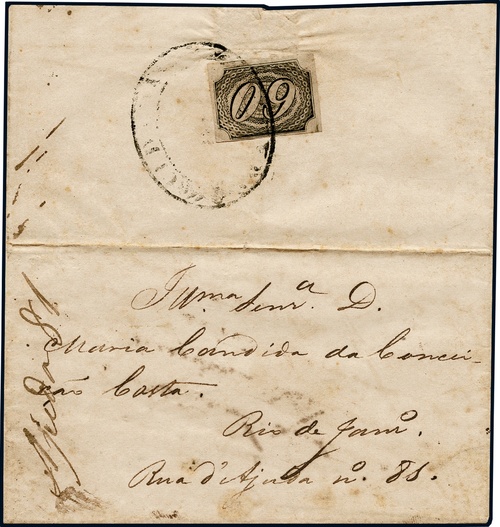 60
Illma Senra D.
Maria Candida da Concei-
ção Costa.
Rio de Janro.
Rua d'Ajuda no. 81.